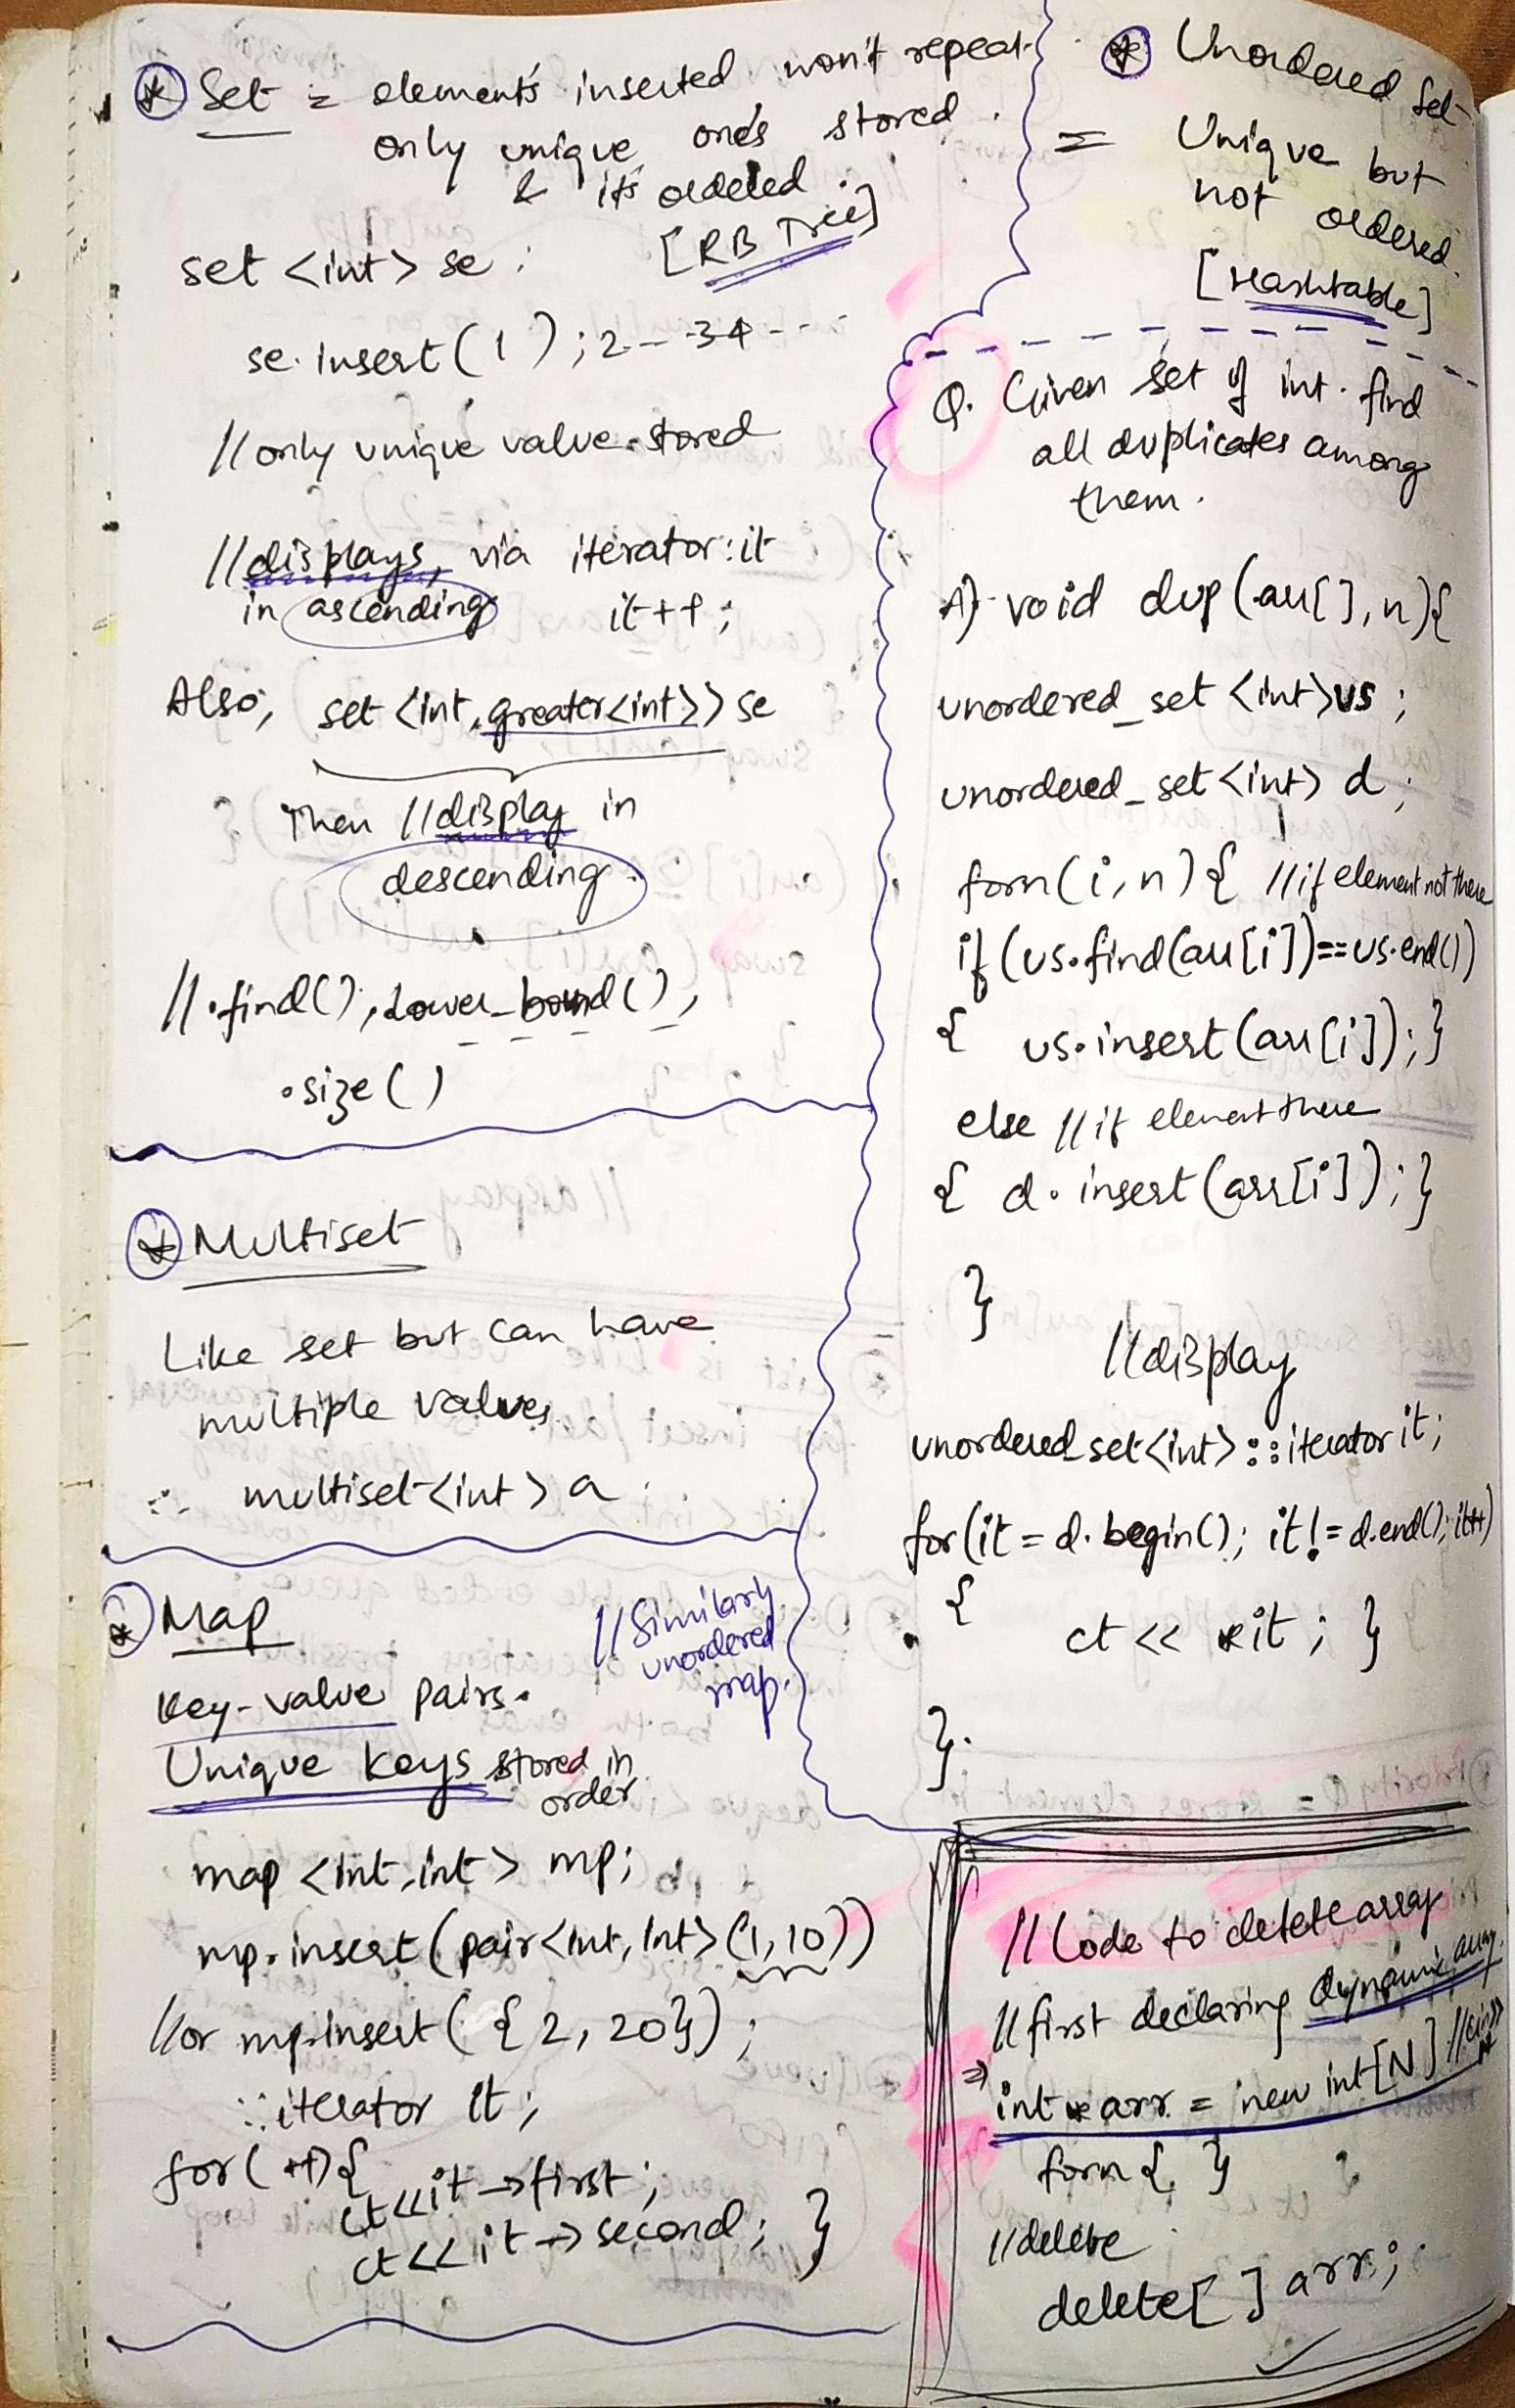 * Set = elements inserted won't repeat
only unique one's stored.
& it's ordered.
[RB Tree]
set <int> se ;
se.insert(1) ; 2 - - 3 4 - - -
//only unique value stored
//displays, via iterator : it
in ascending it++ ;
Also, set <int, greater<int>> se
Then //display in
descending.
// .find(), Lower_bound(),
.size()
* Multiset
Like set but can have
multiple values.
∴ multiset<int> a
* Map
//Similarly
unordered
map.
Key-value pairs.
Unique keys stored in
order
map <int,int> mp;
mp.insert(pair<int, int>(1,10))
//or mp.insert({2, 20}) ;
::iterator it ;
for( ++){
ct<<it->first;
ct<<it->second; }
* Unordered Set
= Unique but
not ordered.
[Hashtable]
Q. Given set of int. find
all duplicates among
them.
A) void dup(arr[], n){
unordered_set <int>us ;
unordered_set<int> d ;
forn(i, n){ //if element not there
if(us.find(arr[i])==us.end())
{ us.insert(arr[i]);}
else //if element there
{ d.insert(arr[i]);}
}
//display
unordered_set<int>::iterator it;
for(it = d.begin(); it!=d.end(); it++)
{
ct << *it ; }
}.
//Code to delete array
//first declaring dynamic array.
⇒ int *arr = new int[N] //cin>>N
forn { }
//delete
delete[ ] arr;